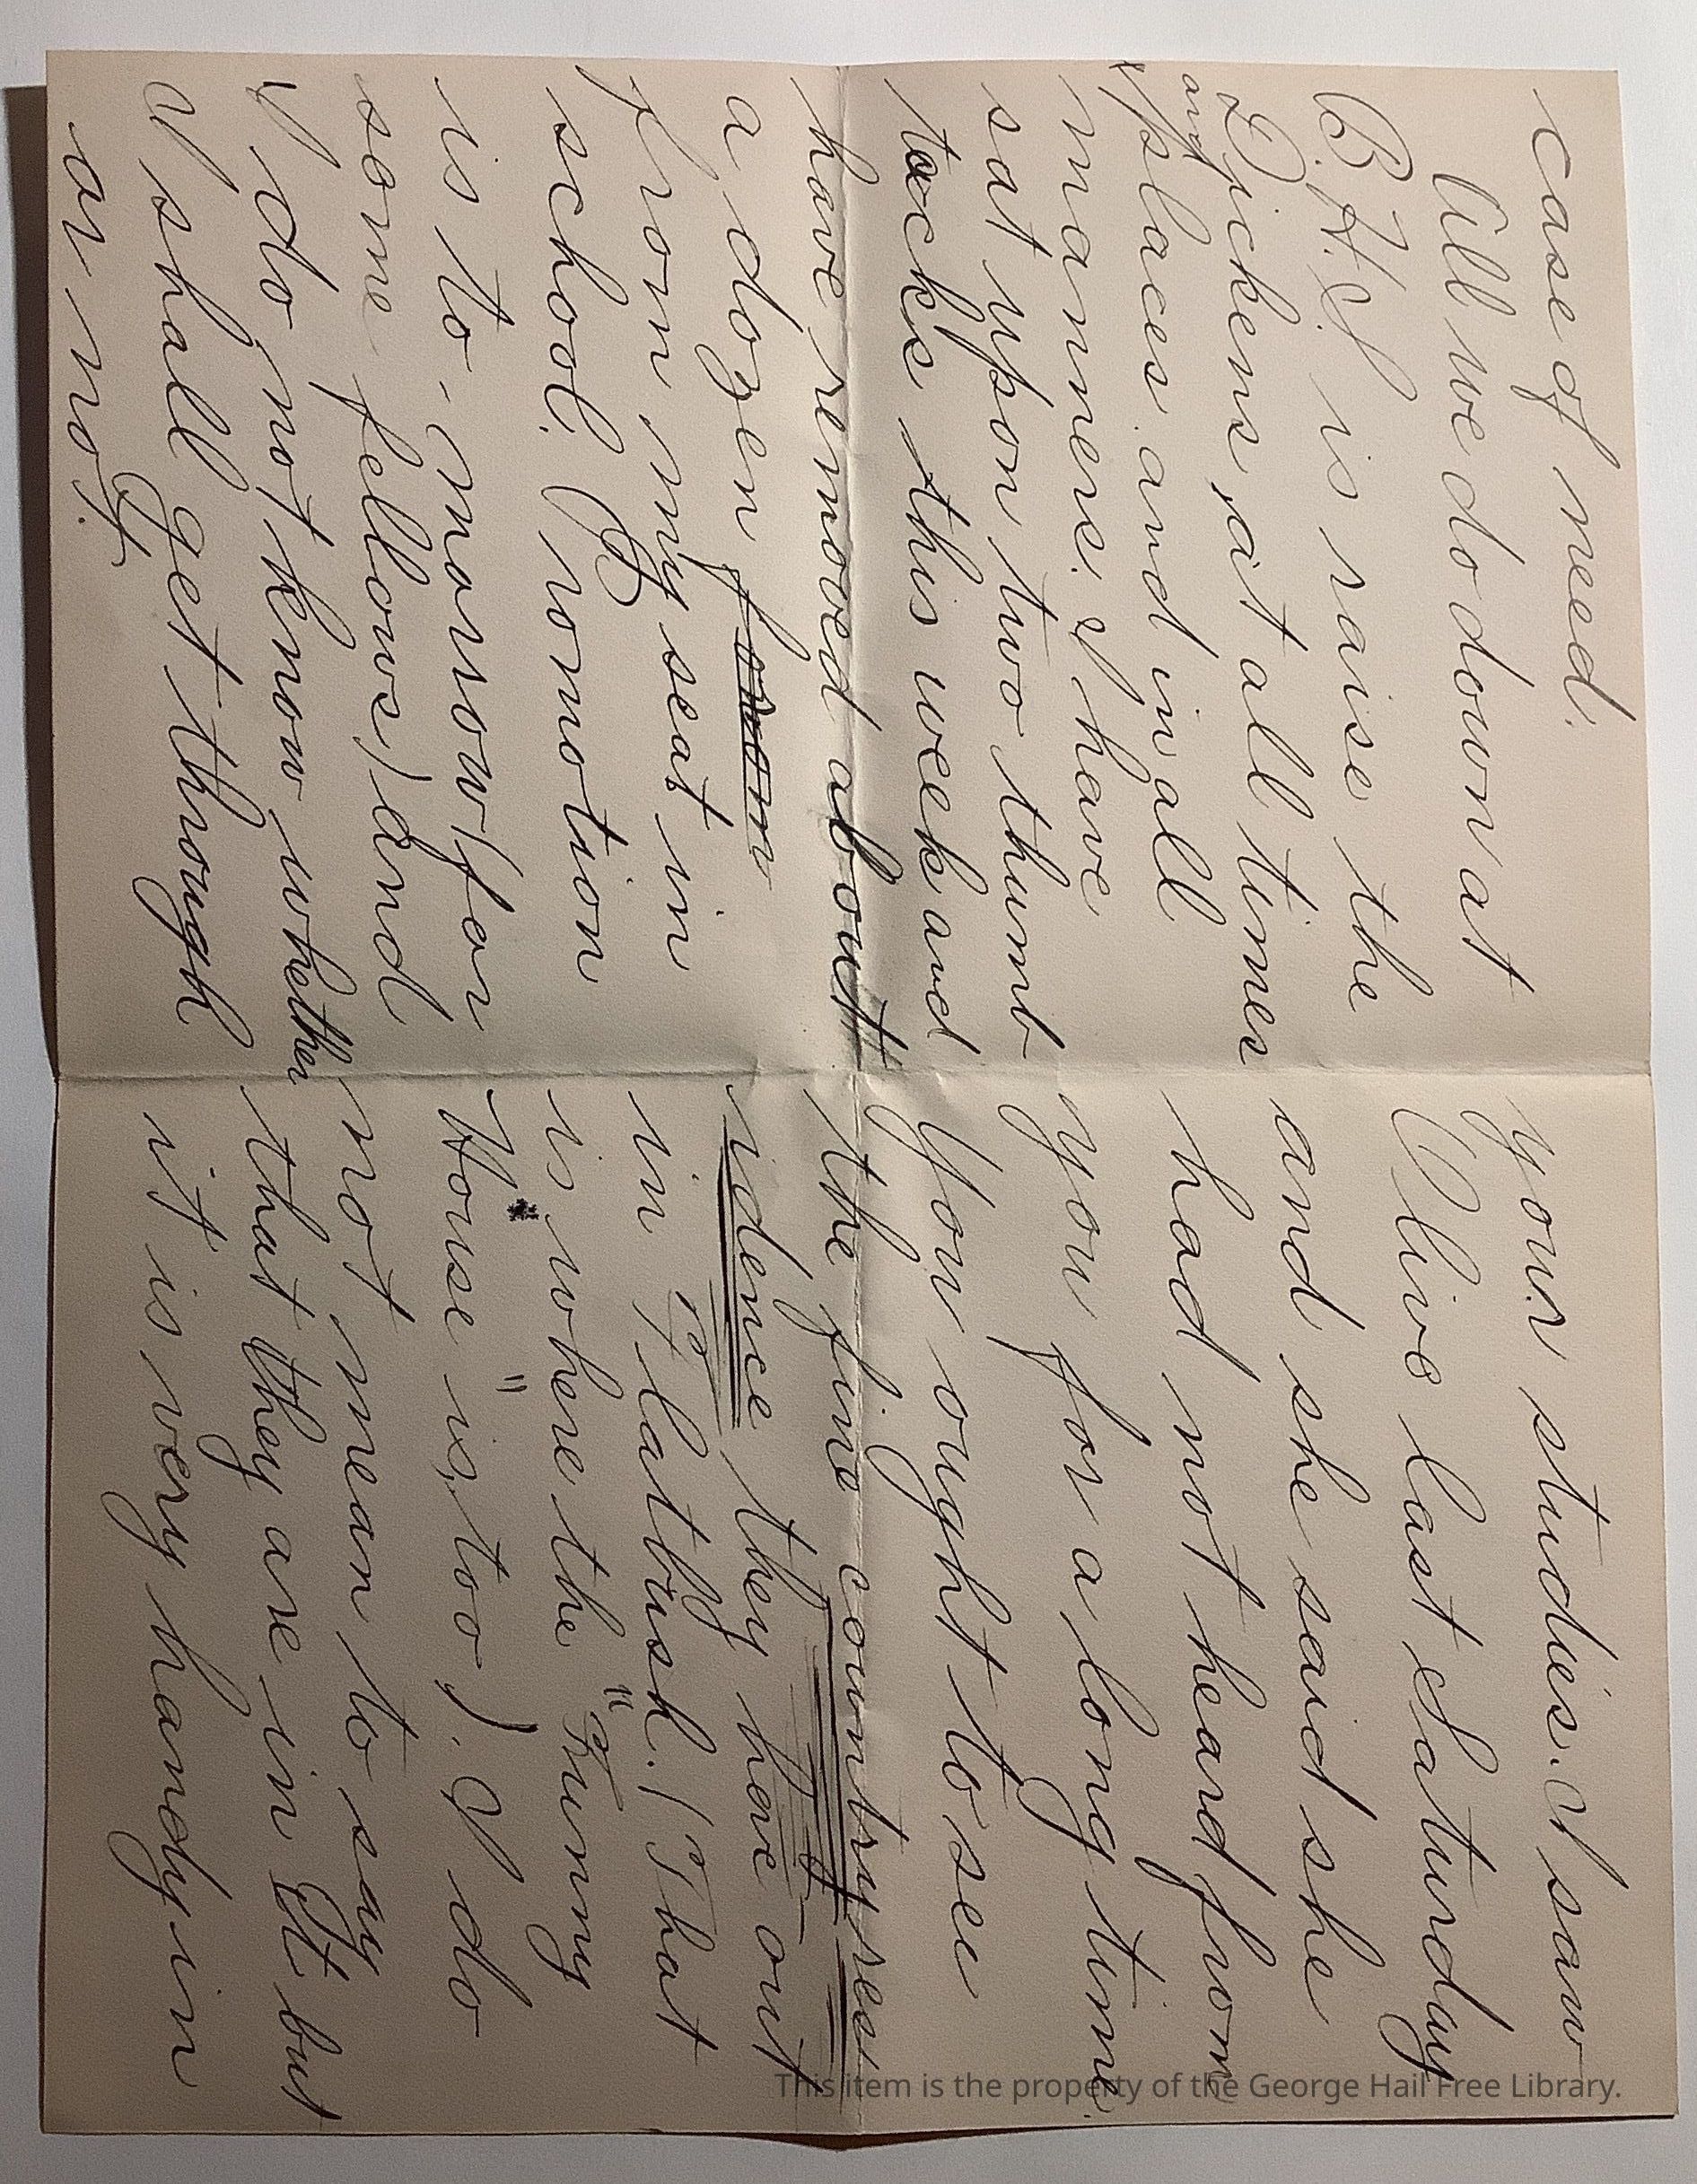 your studies. I saw
Olive last Saturday
and she said she
had not heard from
you for a long time.
You ought to see
the fine country res
idence they have out
in Flatbush. (That
is where the "Funny
House" is, too,). I do
not mean to say
that they are in It but
it is very handy in
case of need.
All we do down at
B.H.S. is raise the
Dickens at all times
and places. and in all
manners. I have
sat upon two thumb
tacks this week and
have removed about
a dozen from
from my seat in
school. Promotion
is to-morrow (for
some fellows) and
I do not know whether
I shall get through
or not.
This item is the property of the George Hail Free Library.